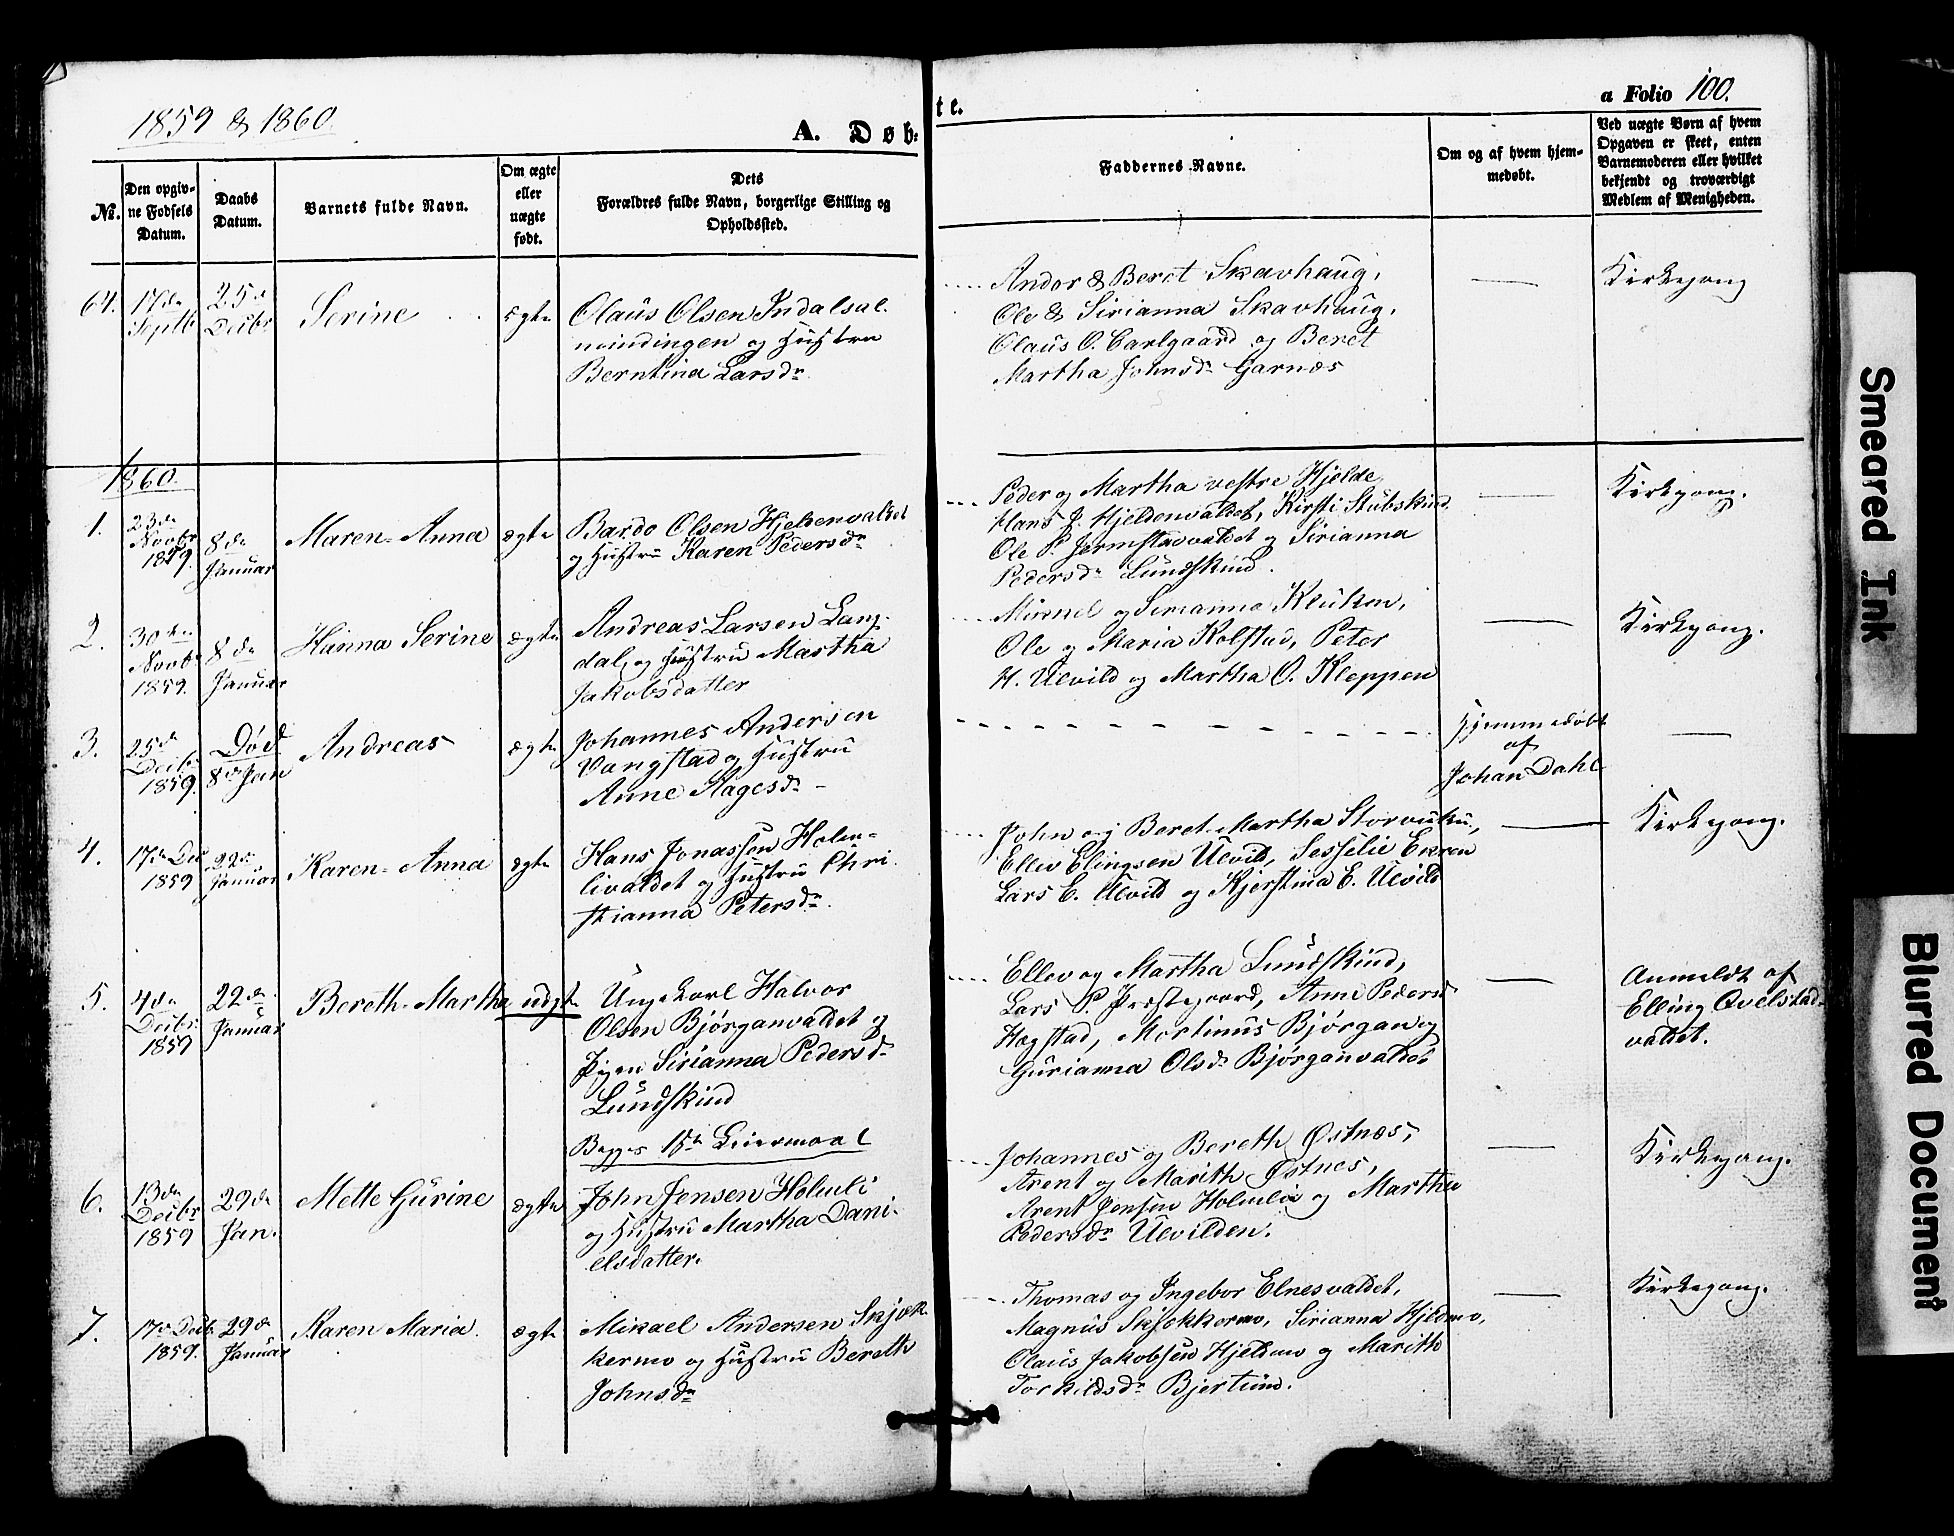 1859 & 1860.
A. Døb-
te.
a Folio 100.
Nr.
Den opgiv-
ne Fødsels
Datum.
Daabs
Datum.
Barnets fulde Navn.
Om ægte
eller
uægte
født.
Dets
Forældres fulde Navn, borgerlige Stilling og
Opholdssted.
Faddernes Navne.
Om og af hvem hjem-
medøbt.
Ved uægte Børn af hvem
Opgaven er skeet, enten
Barnemoderen eller hvilket
bekjendt og troværdigt
Medlem af Menigheden.
64.
17de
Septb
25de
Decbr
Serine
ægte
Olaus Olsen Indalsal-
mindingen og Hustru
Berntina Larsdr
Andor & Beret Skavhaug,
Ole & Sirianna Skavhaug,
Olaus O. Carlgaard og Beret
Martha Johnsdr Garnæs
Kirkegang
1860.
1.
23de
Novbr
1859.
8de
Januar
Maren-Anna
ægte
Bardo Olsen Hjeldenvaldet
og Hustru Karen Pedersdr
Peder og Martha vestre Hjelde,
Hans J. Hjeldenvaldet, Kirsti Stubskind
Ole P. Jermstadvaldet og Sirianna
Pedersdr Lundskind.
Kirkegang.
2.
30te
Novbr
1859.
8de
Januar
Hanna Serine
ægte
Andreas Larsen Lang-
dal, og Hustru Martha
Jakobsdatter
og Sirianna Kluken,
Ole og Maria Kolstad, Peter
H. Ulvild og Martha O. Kleppen
Kirkegang.
3.
25de
Decbr
1859.
Død
8de Jan
Andreas
ægte
Johannes Andersen
Vangstad og Hustru
Anne Aagesdr
Hjemmedøbt
af
Johan Dahl
4.
17de Dec
1859
22de
Januar
Karen-Anna
ægte
Hans Jonassen Holm-
livaldet og Hustru Chri
stianna Petersdr.
John og Beret-Martha Storvuku,
Ellev Elingsen Ulvild, Sesselie Ekren
Lars E. Ulvild og Kjerstina E. Ulvild
Kirkegang.
5.
4de
Decbr.
1859
22de
Januar
Bereth-Martha
uægte
Ungkarl Halvor
Olsen Bjørganvaldet og
Pigen Sirianna Pedersdr
Lundskind
Begges 1ste Leiermaal
Ellev og Martha Lundskind,
Lars P. Præstegaard, Anne Pedersd
Hagstad, Mortinus Bjørgan og
Gurianna Olsdr Bjørganvaldet
Anmeldt af
Elling Ovelstad-
valdet.
6.
13de
Decbr
1859
29de
Jan.
Mette Gurine
ægte
John Jensen Holmli
og Hustru Martha Dani-
elsdatter.
Johannes og Bereth Østnæs,
Arent og Marith Østnes,
Arent Jensen Holmlie og Martha
Pedersdr Ulvilden.
Kirkegang.
7.
17de Decb.
1859.
29de
Januar
Karen Maria.
ægte
Mikael Andersen Skjæk-
kermo og Hustru Bereth
Johnsdr
Thomas og Ingebor Elnesvaldet,
Magnus Skjækkermo, Sirianna Hjeldmo,
Olaus Jakobsen Hjeldmo og Marith
Torkildsdr Bjertun.
Kirkegang.
Smeared Ink
Blurred Document